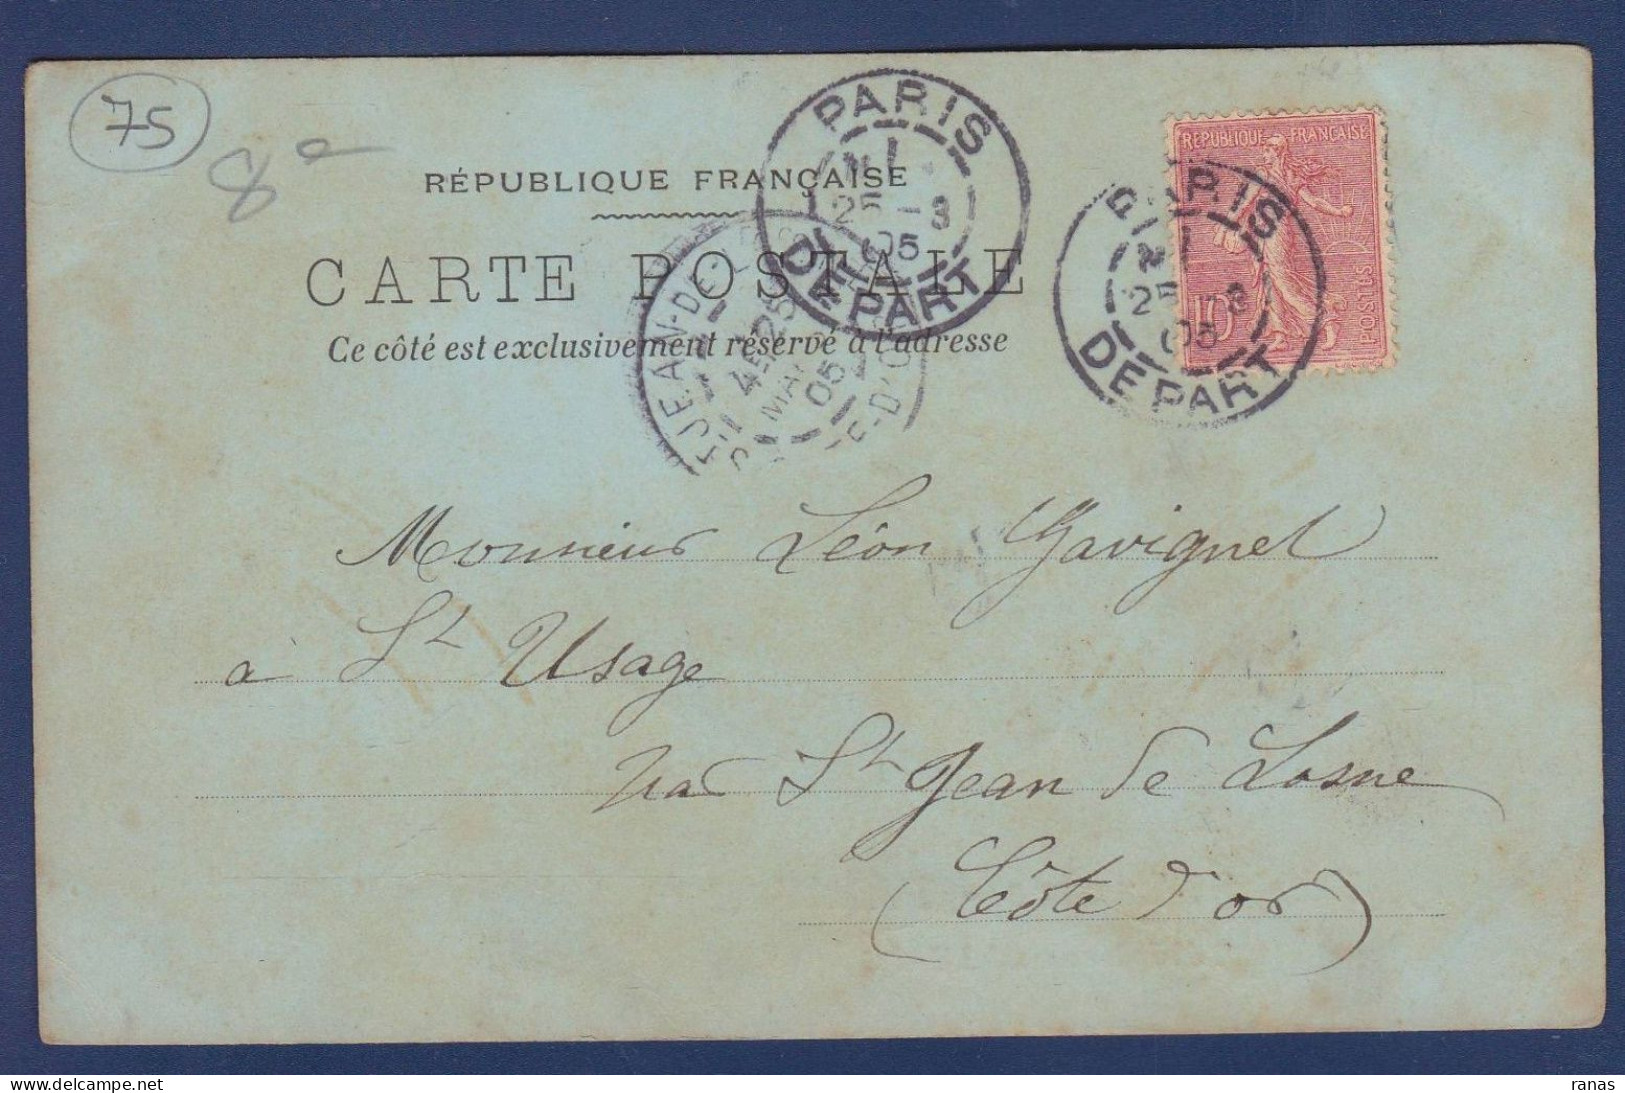 75
8e
RÉPUBLIQUE FRANÇAISE
CARTE POSTALE
Ce côté est exclusivement réservé à l'adresse
PARIS
25 -3
05
DEPART
RÉPUBLIQUE FRANÇAISE
10
POSTES
PARIS
25 -3
05
DEPART
ST-JEAN-DE-
25
MAR
05
CÔTE-D'OR
Monsieur Léon Gavignet
à St Usage
par St Jean de Losne
(Côte d'or)
ranas